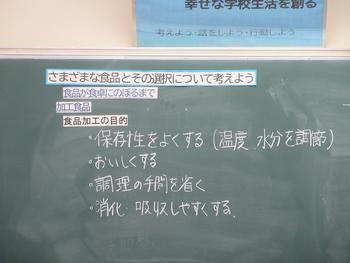 幸せな学校生活を創る
考えよう・話をしよう・行動しよう
さまざまな食品とその選択について考えよう
食品が食卓にのぼるまで
加工食品
食品加工の目的
・保存性をよくする(温度、水分を調節)
・おいしくする
・調理の手間を省く
・消化・吸収しやすくする。